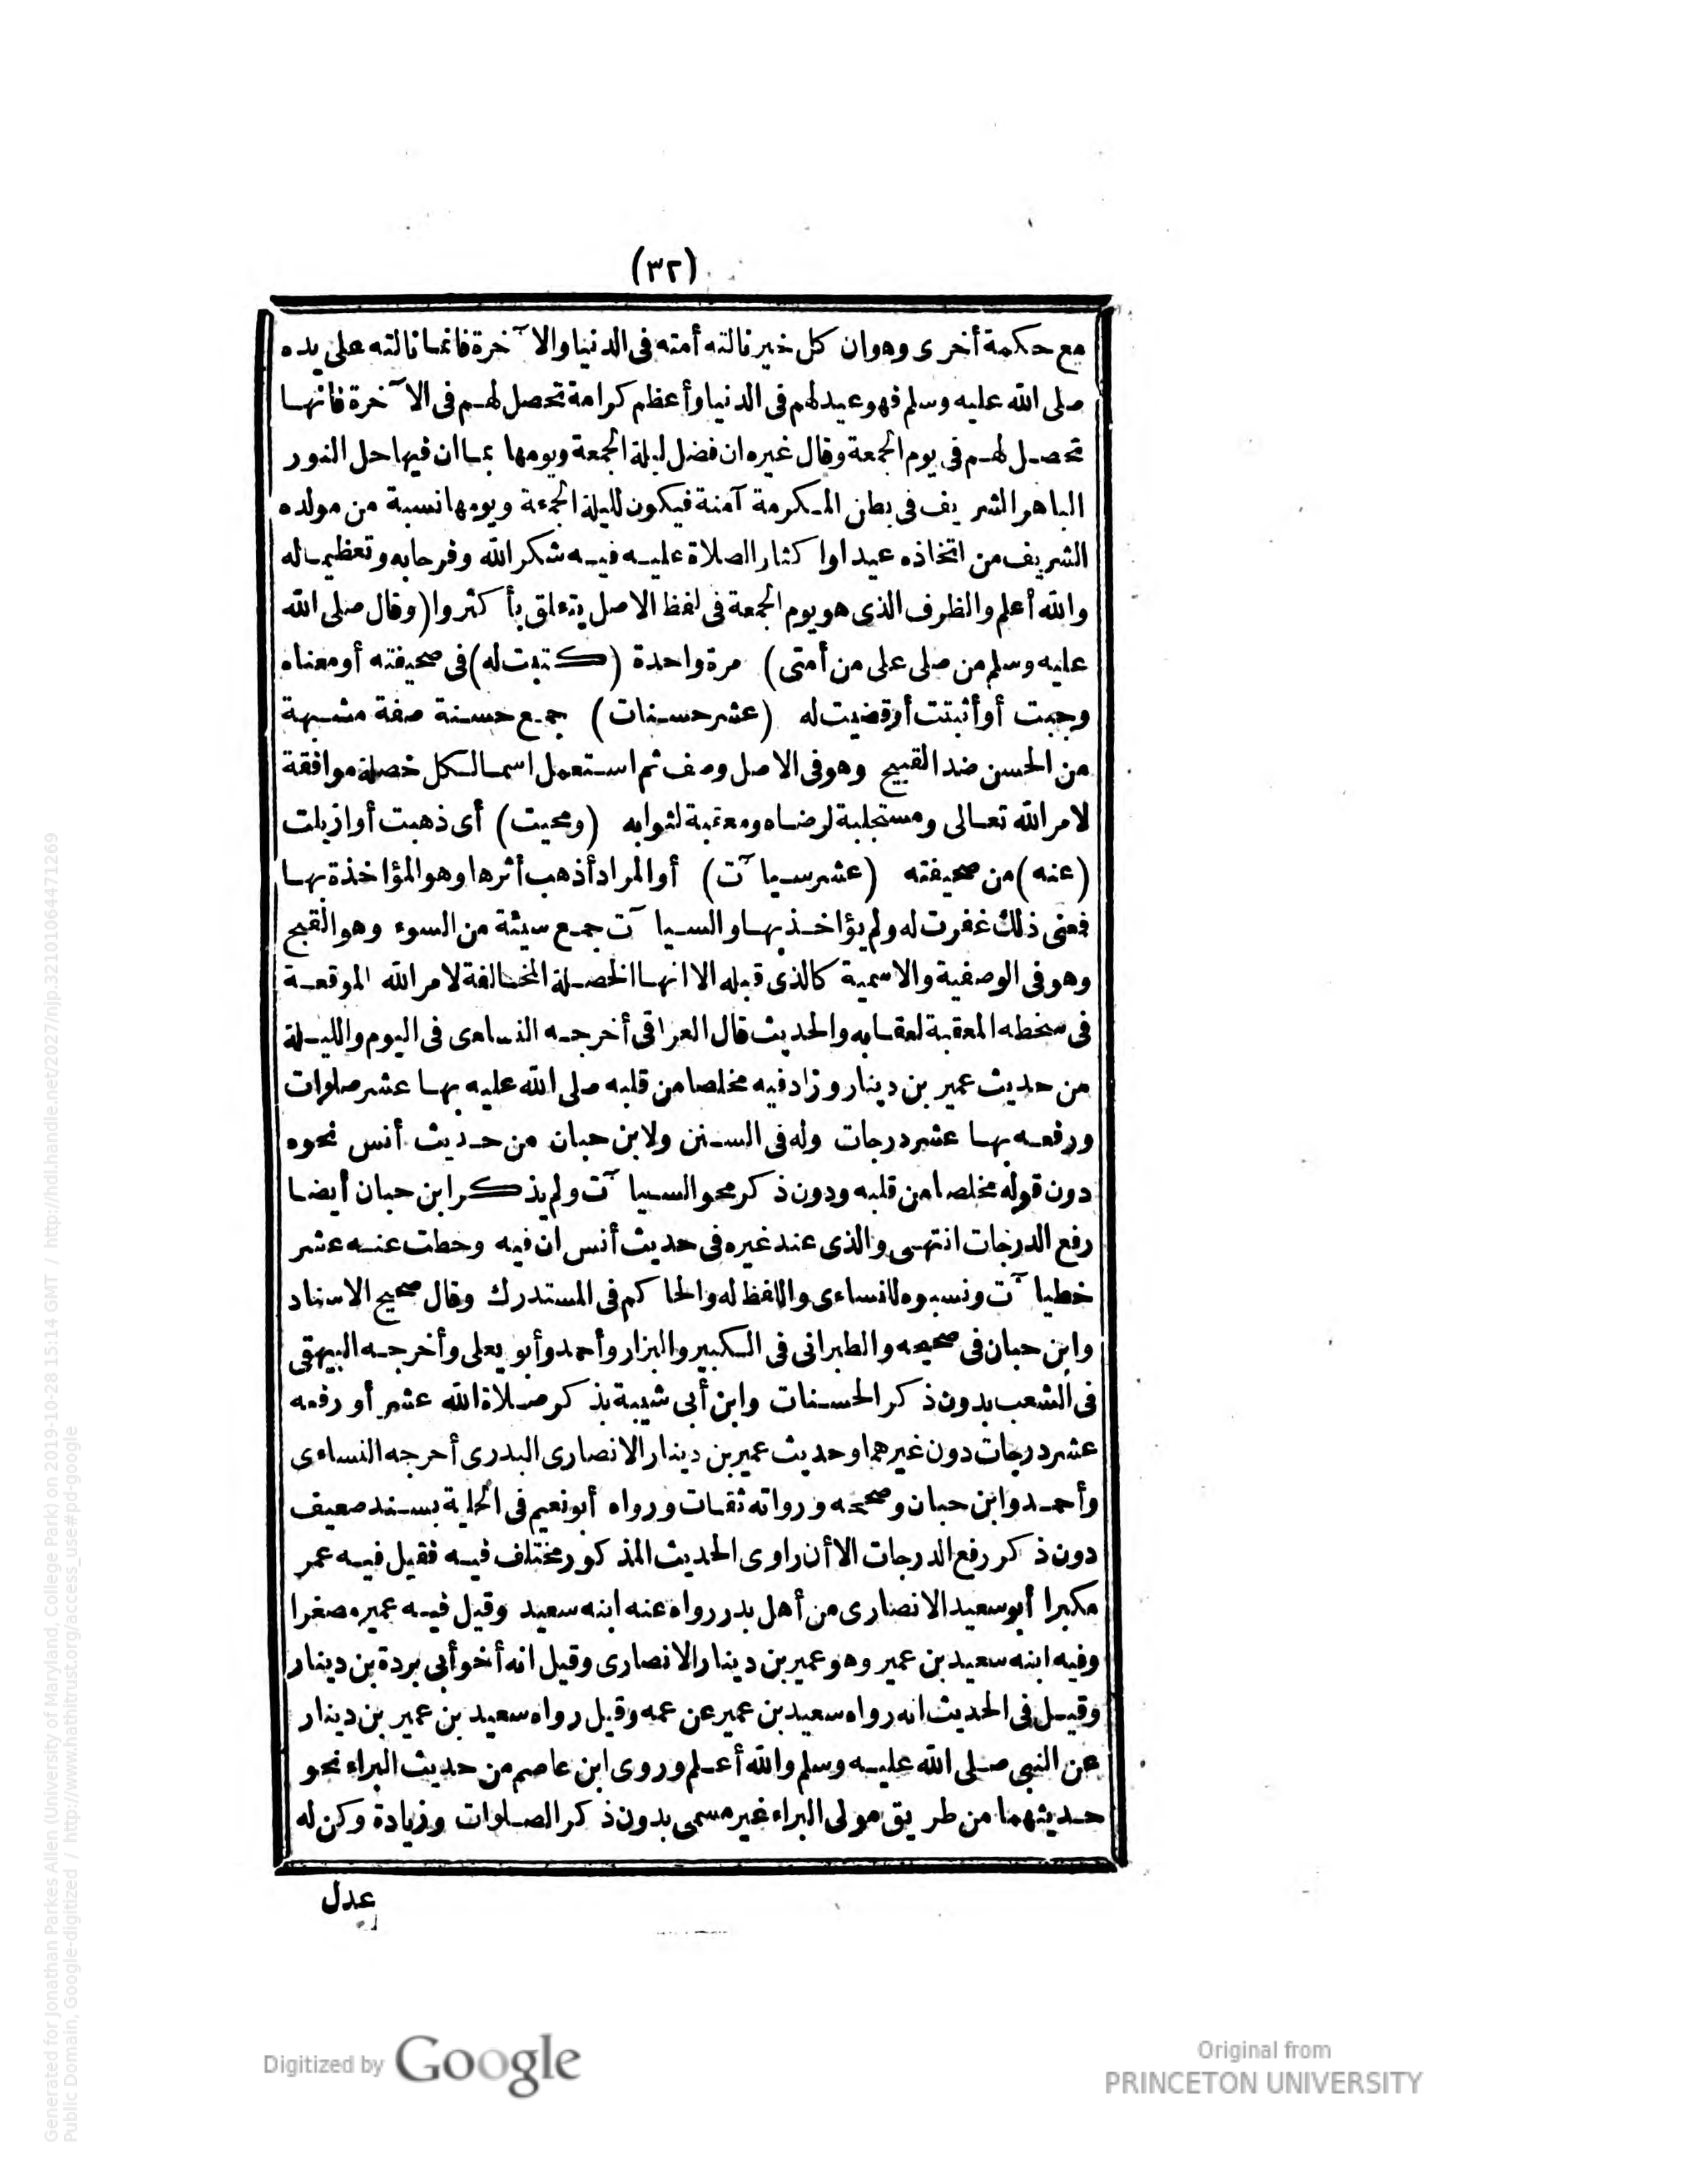 (٣٢)
مع حكمة أخرى وهو ان كل خير نالته أمته فى الدنيا والآخرة فانما نالته على يده
صلى الله عليه وسلم فهو عيد لهم فى الدنيا وأعظم كرامة تحصل لهم فى الآخرة فانها
تحصل لهم فى يوم الجمعة وقال غيره ان فضل ليلة الجمعة ويومها بما ان فيها حل النور
الباهر الشريف فى بطن المكرمة آمنة فيكون لليلة الجمعة ويومها نسبة من مولده
الشريف من اتخاذه عيدا واكثار الصلاة عليه فيه شكر الله وفرحا به وتعظيما له
والله أعلم والظرف الذى هو يوم الجمعة فى لفظ الاصل يتعلق بأكثروا (وقال صلى الله
عليه وسلم من صلى على من أمتى) مرة واحدة (كتبت له) فى صحيفته أو معناه
وجبت أو أثبتت أو قضيت له (عشر حسنات) جمع حسنة صفة مشبهة
من الحسن ضد القبيح وهو فى الاصل وصف ثم استعمل اسما لكل خصلة موافقة
لامر الله تعالى ومستجلبة لرضاه ومعقبة لثوابه (ومحيت) أى ذهبت أو ازيلت
(عنه) من صحيفته (عشر سيآت) أو المراد أذهب أثرها وهو المؤاخذة بها
فمعنى ذلك غفرت له ولم يؤاخذ بها والسيآت جمع سيئة من السوء وهو القبح
وهو فى الوصفية والاسمية كالذى قبله الا انها الخصلة المخالفة لامر الله الموقعة
فى سخطه المعقبة لعقابه والحديث قال العراقى أخرجه النساءى فى اليوم والليلة
من حديث عمير بن دينار وزاد فيه مخلصا من قلبه صلى الله عليه بها عشر صلوات
ورفعه بها عشر درجات وله فى السنن ولابن حبان من حديث أنس نحوه
دون قوله مخلصا من قلبه ودون ذكر محو السيآت ولم يذكر ابن حبان أيضا
رفع الدرجات انتهى والذى عند غيره فى حديث أنس ان فيه وحطت عنه عشر
خطيآت ونسبوه للنساءى واللفظ له والحاكم فى المستدرك وقال صحيح الاسناد
وابن حبان فى صحيحه والطبرانى فى الكبير والبزار وأحمد وأبو يعلى وأخرجه البيهقى
فى الشعب بدون ذكر الحسنات وابن أبى شيبة بذكر صلاة الله عشر أو رفعه
عشر درجات دون غيرهما وحديث عمير بن دينار الانصارى البدرى أخرجه النساءى
وأحمد وابن حبان وصححه ورواته ثقات ورواه أبو نعيم فى الحلية بسند ضعيف
دون ذكر رفع الدرجات الا أن راوى الحديث المذكور مختلف فيه فقيل فيه عمر
مكبرا أبو سعيد الانصارى من أهل بدر رواه عنه ابنه سعيد وقيل فيه عمير مصغرا
وفيه ابنه سعيد بن عمير وهو عمير بن دينار الانصارى وقيل انه أخو أبى بردة بن دينار
وقيل فى الحديث انه رواه سعيد بن عمير عن عمه وقيل رواه سعيد بن عمير بن دينار
عن النبى صلى الله عليه وسلم والله أعلم وروى ابن عاصم من حديث البراء نحو
حديثهما من طريق مولى البراء غير مسمى بدون ذكر الصلوات وزيادة وكن له
عدل
Digitized by Google
Original from
PRINCETON UNIVERSITY
Generated for Jonathan Parkes Allen (University of Maryland, College Park) on 2019-10-28 15:14 GMT / http://hdl.handle.net/2027/njp.32101064471269
Public Domain, Google-digitized / http://www.hathitrust.org/access_use#pd-google